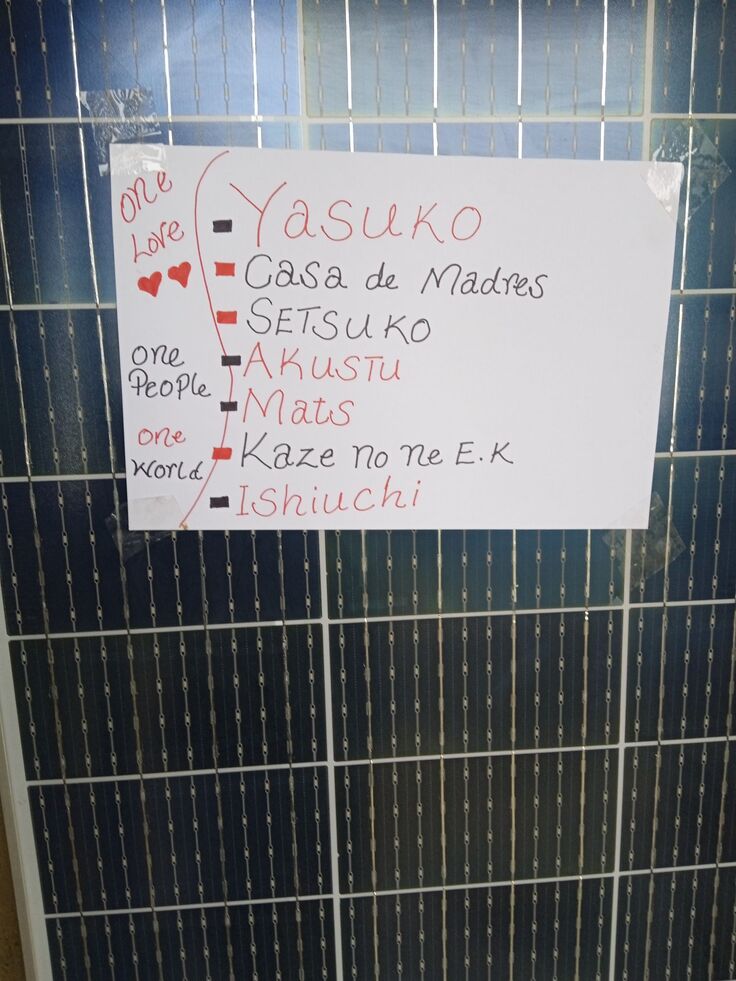 one
Love
one
People
one
World
Yasuko
Casa de Madres
SETSUKO
AKUSTU
Mats
Kaze no ne E.K
Ishiuchi